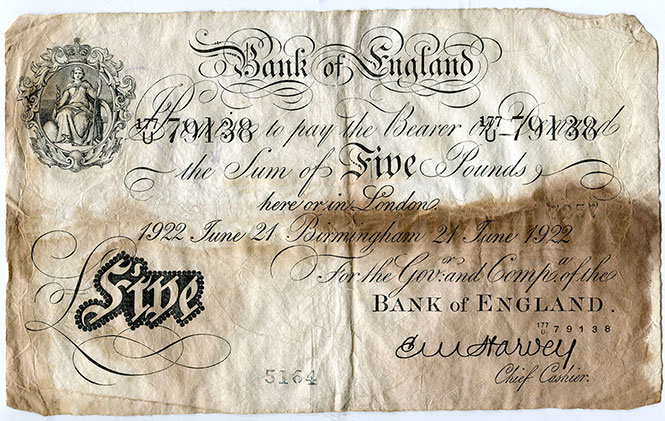 Bank of England
177/U 79138 to pay the Bearer on Demand 177/U 79138
the Sum of Five Pounds
here or in London.
1922 June 21 Birmingham 21 June 1922
For the Govr. and Compa. of the
BANK of ENGLAND.
£Five
177/U 79138
E M Harvey
5164
Chief Cashier.